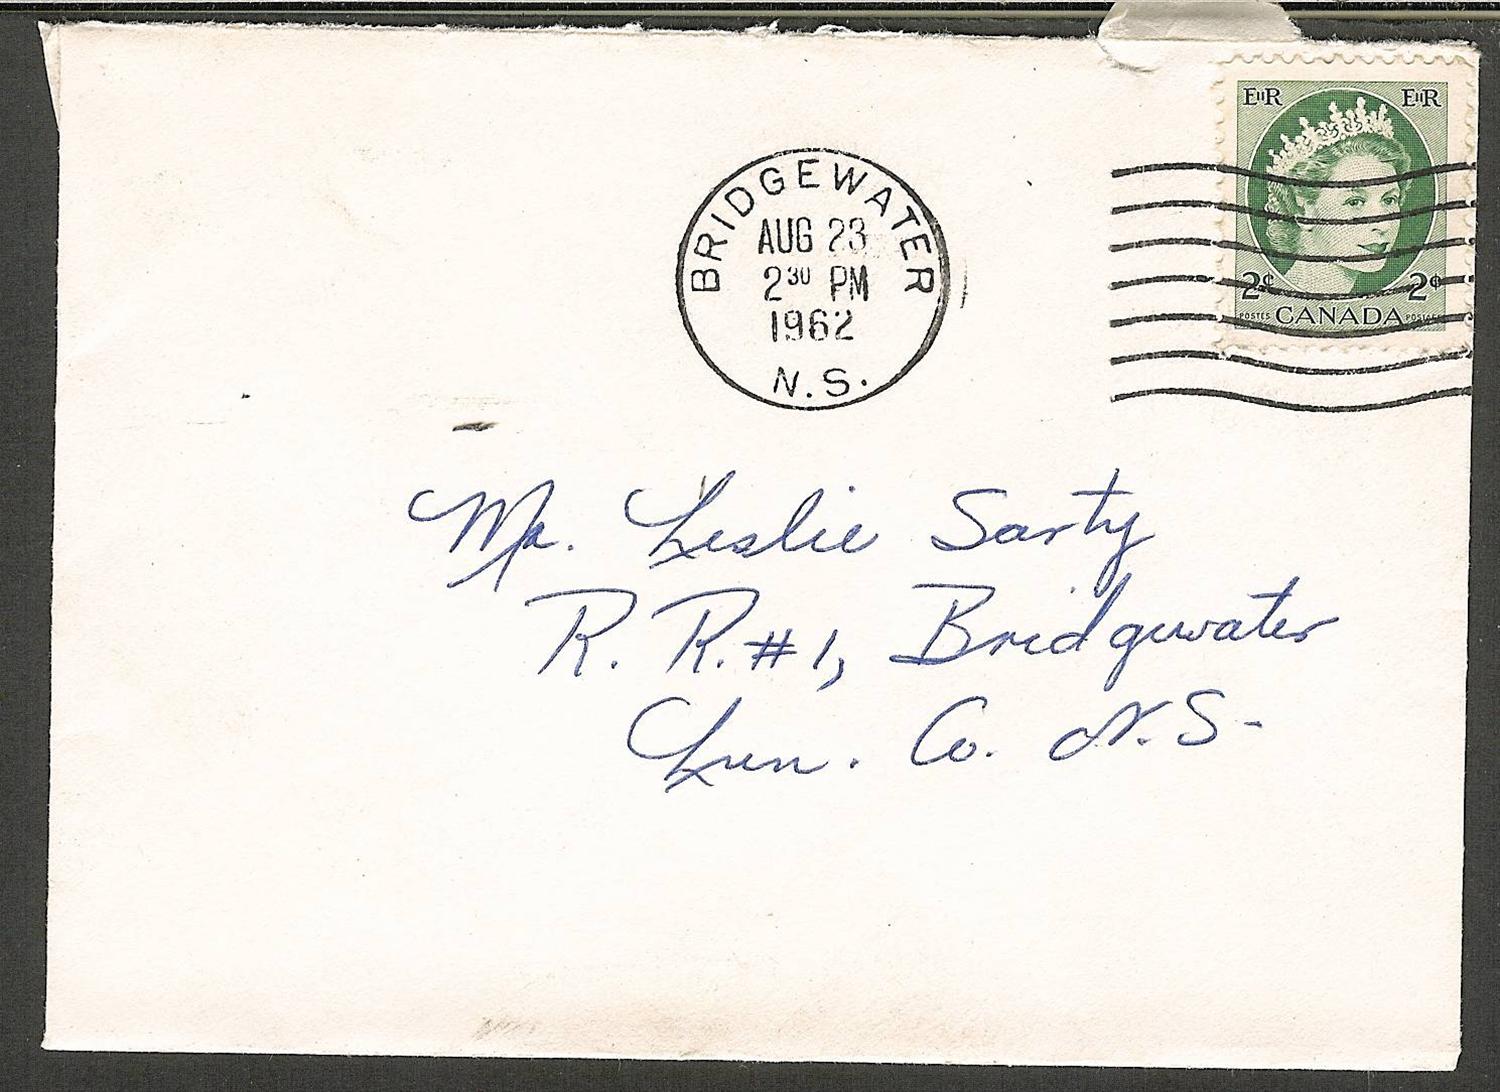 EIIR EIIR
BRIDGEWATER
AUG 23
2 30 PM
1962
N.S.
2¢ 2¢
POSTES CANADA POSTAGE
Mr. Leslie Sarty
R. R. #1, Bridgewater
Lun. Co. N.S-